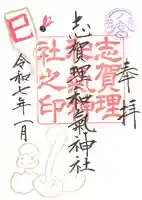 奉拝
志賀理
和氣神
社之印
志賀理和氣神社
巳
令和七年一月